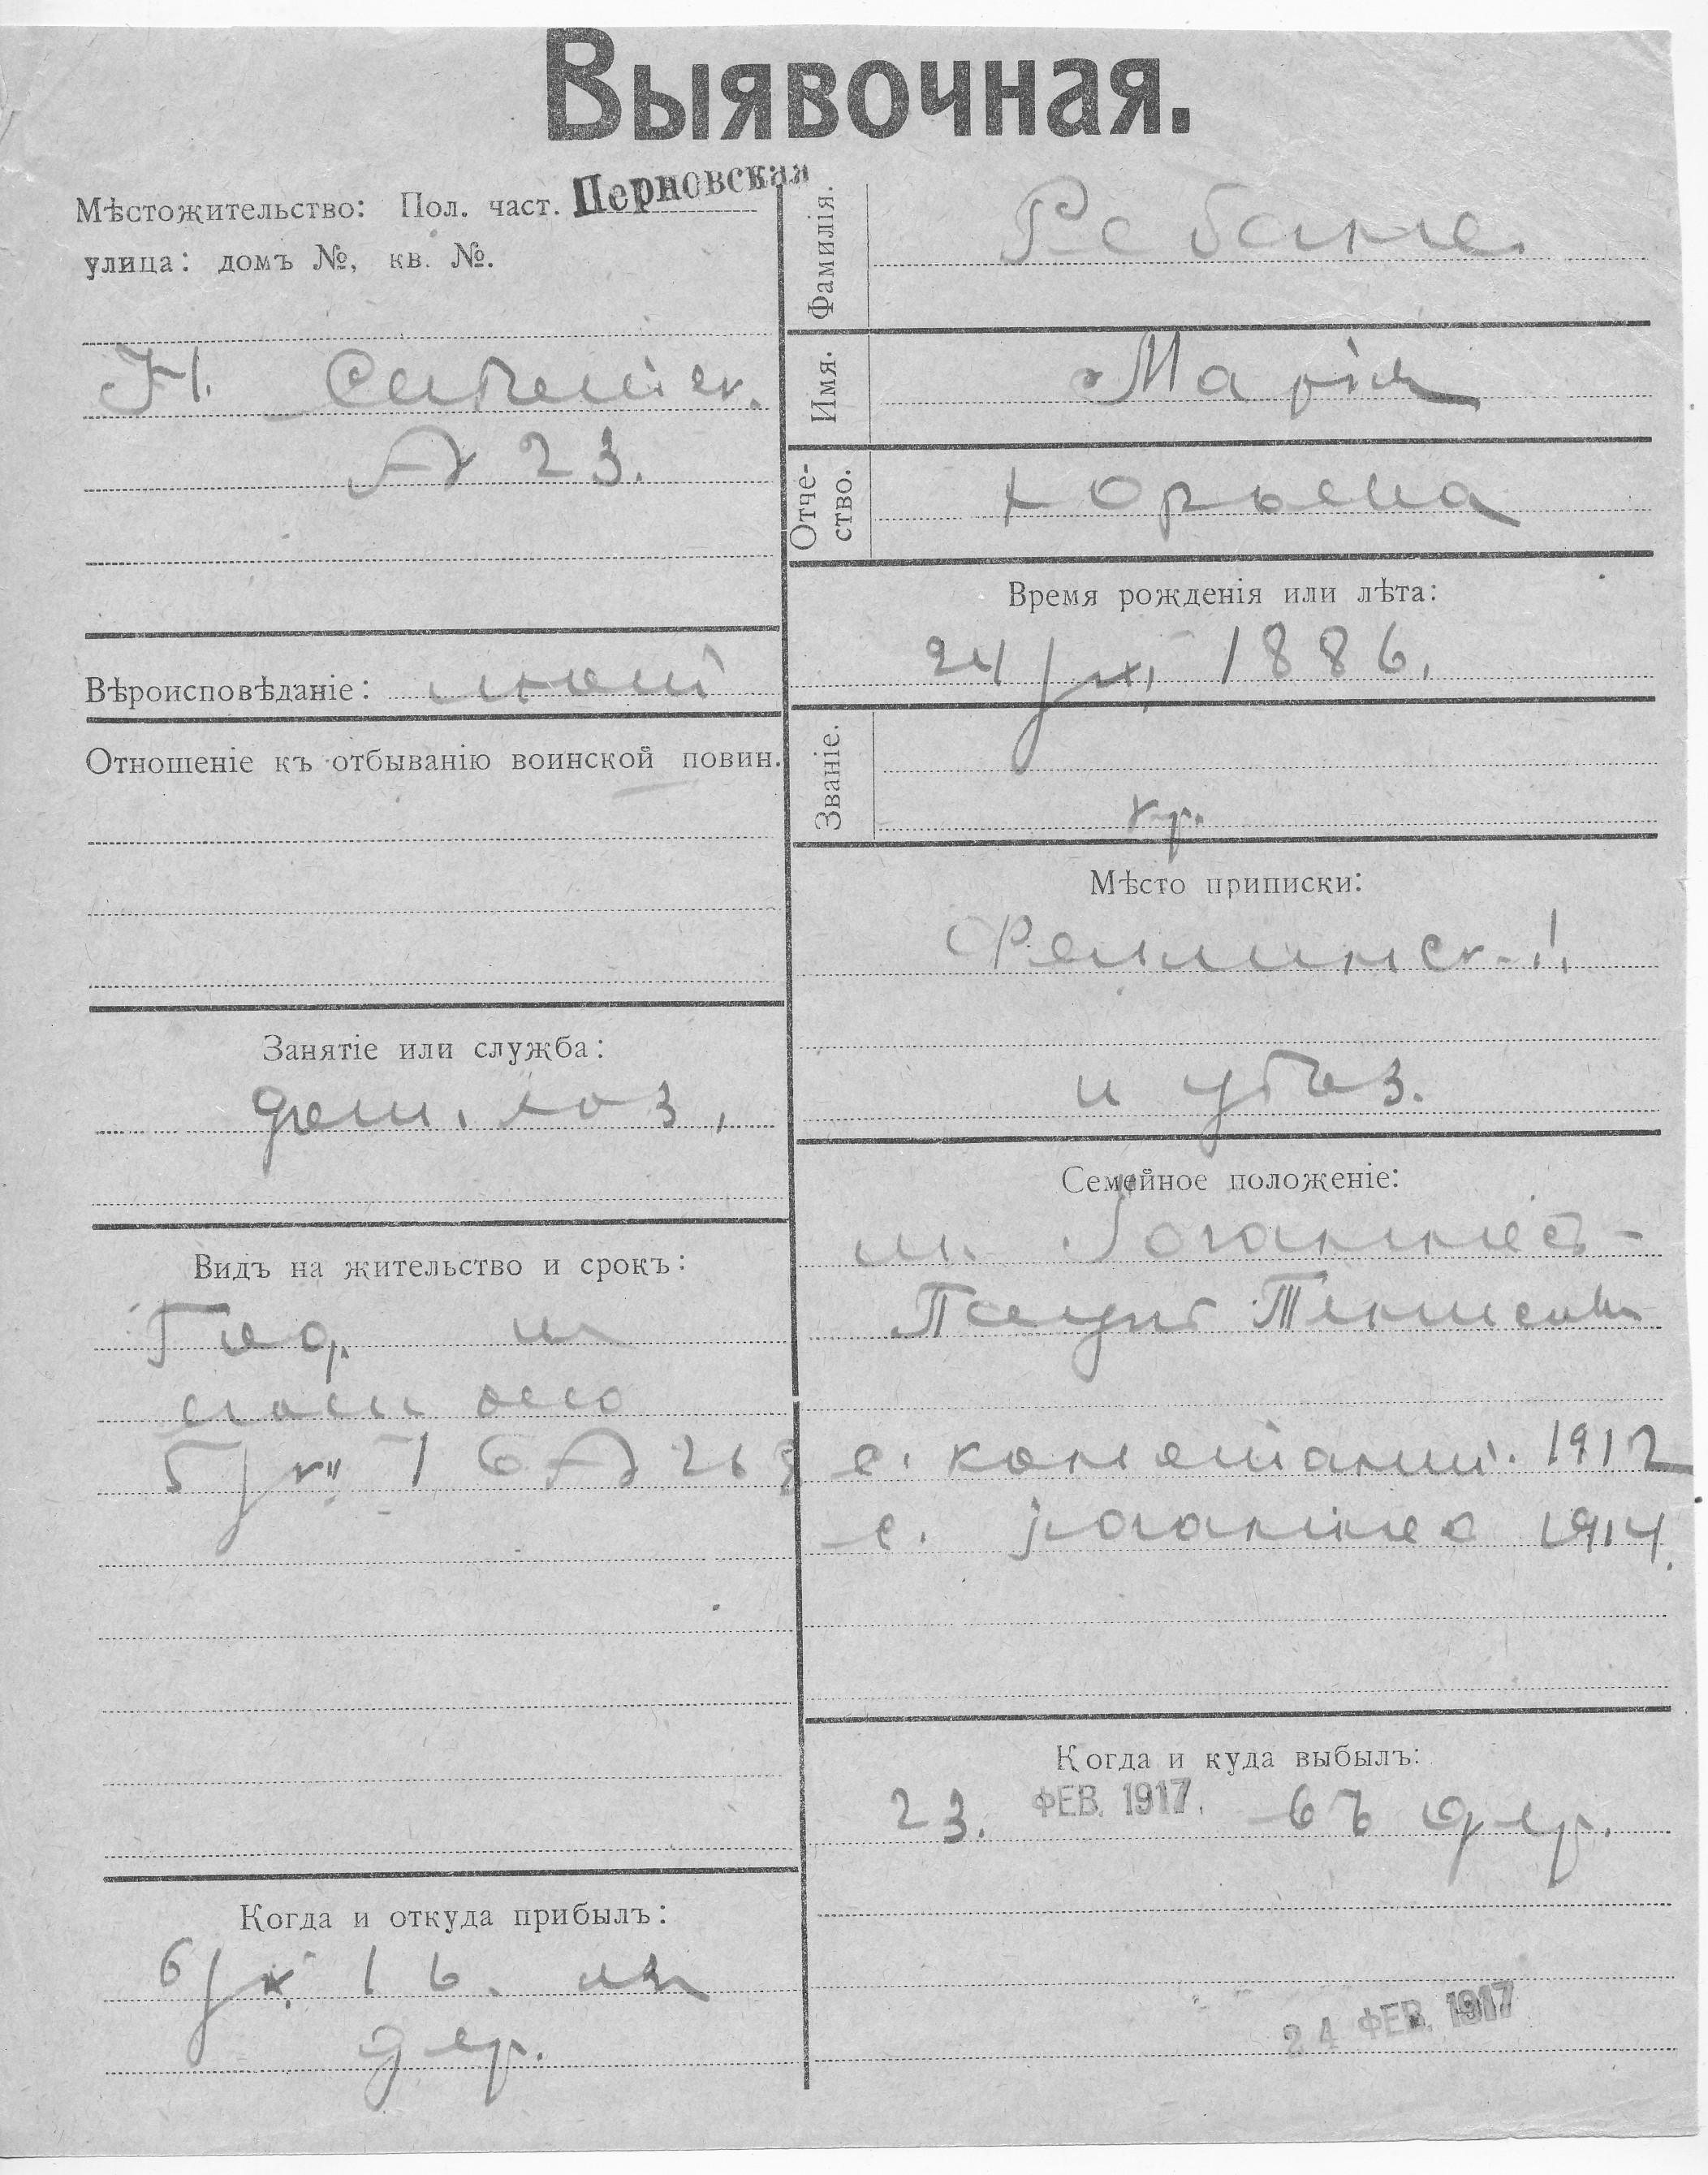 Выявочная.
Мѣстожительство: Пол. част. Перновская
улица: домъ №, кв. №.
№ 23.
Вѣроисповѣданіе: лют
Отношеніе къ отбыванію воинской повин.
Занятіе или служба:
дом. хоз.
Видъ на жительство и срокъ:
Когда и откуда прибылъ:
6/X 16. из
дер.
Фамилія. Ребане
Имя. Марія
Отчество. Юрьева
Время рожденія или лѣта:
24/XI 1886.
Званіе.
кр.
Мѣсто приписки:
Феллинск.
и уѣз.
Семейное положеніе:
м. Іоганнесъ-
с. Константин. 1912
с. Іоганнес 1914.
Когда и куда выбылъ:
23. ФЕВ. 1917. въ дер.
24 ФЕВ. 1917